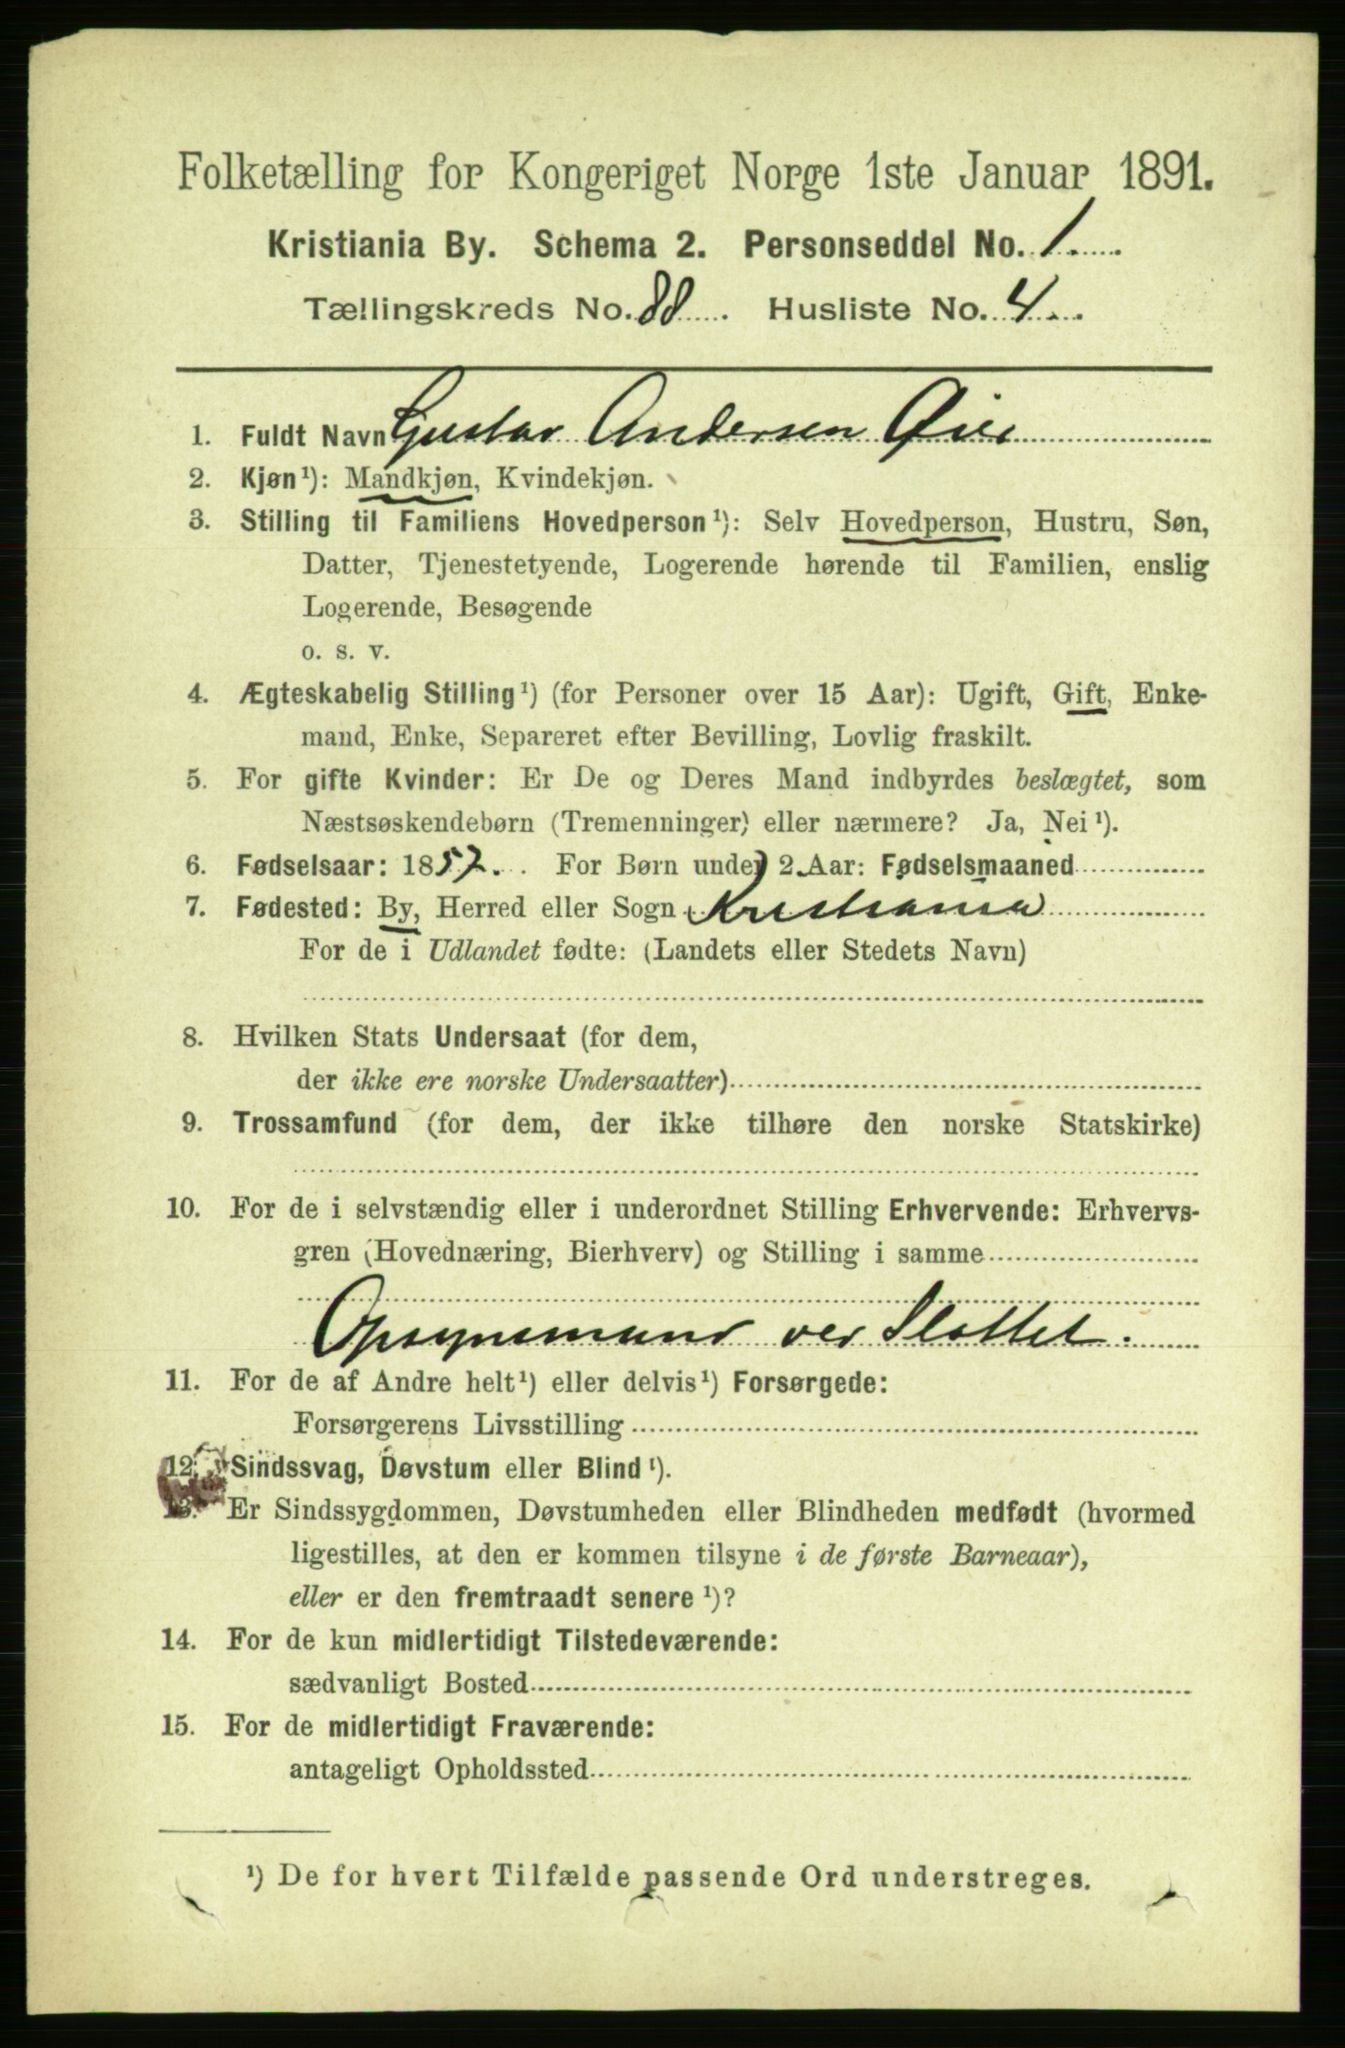 Folketælling for Kongeriget Norge 1ste Januar 1891.
Kristiania By. Schema 2. Personseddel No. 1
Tællingskreds No. 88. Husliste No. 4
1. Fuldt Navn Gustav Andersen Øie
2. Kjøn¹): Mandkjøn, Kvindekjøn.
3. Stilling til Familiens Hovedperson¹): Selv Hovedperson, Hustru, Søn,
Datter, Tjenestetyende, Logerende hørende til Familien, enslig
Logerende, Besøgende
o. s. v.
4. Ægteskabelig Stilling¹) (for Personer over 15 Aar): Ugift, Gift, Enke-
mand, Enke, Separeret efter Bevilling, Lovlig fraskilt.
5. For gifte Kvinder: Er De og Deres Mand indbyrdes beslægtet, som
Næstsøskendebørn (Tremenninger) eller nærmere? Ja, Nei¹).
6. Fødselsaar: 1857. For Børn under 2 Aar: Fødselsmaaned
7. Fødested: By, Herred eller Sogn Kristiania
For de i Udlandet fødte: (Landets eller Stedets Navn)
8. Hvilken Stats Undersaat (for dem,
der ikke ere norske Undersaatter)
9. Trossamfund (for dem, der ikke tilhøre den norske Statskirke)
10. For de i selvstændig eller i underordnet Stilling Erhvervende: Erhvervs-
gren (Hovednæring, Bierhverv) og Stilling i samme
Opsynsmand ved Slottet.
11. For de af Andre helt¹) eller delvis¹) Forsørgede:
Forsørgerens Livsstilling
12. Sindssvag, Døvstum eller Blind¹).
13. Er Sindssygdommen, Døvstumheden eller Blindheden medfødt (hvormed
ligestilles, at den er kommen tilsyne i de første Barneaar),
eller er den fremtraadt senere¹)?
14. For de kun midlertidigt Tilstedeværende:
sædvanligt Bosted
15. For de midlertidigt Fraværende:
antageligt Opholdssted
¹) De for hvert Tilfælde passende Ord understreges.